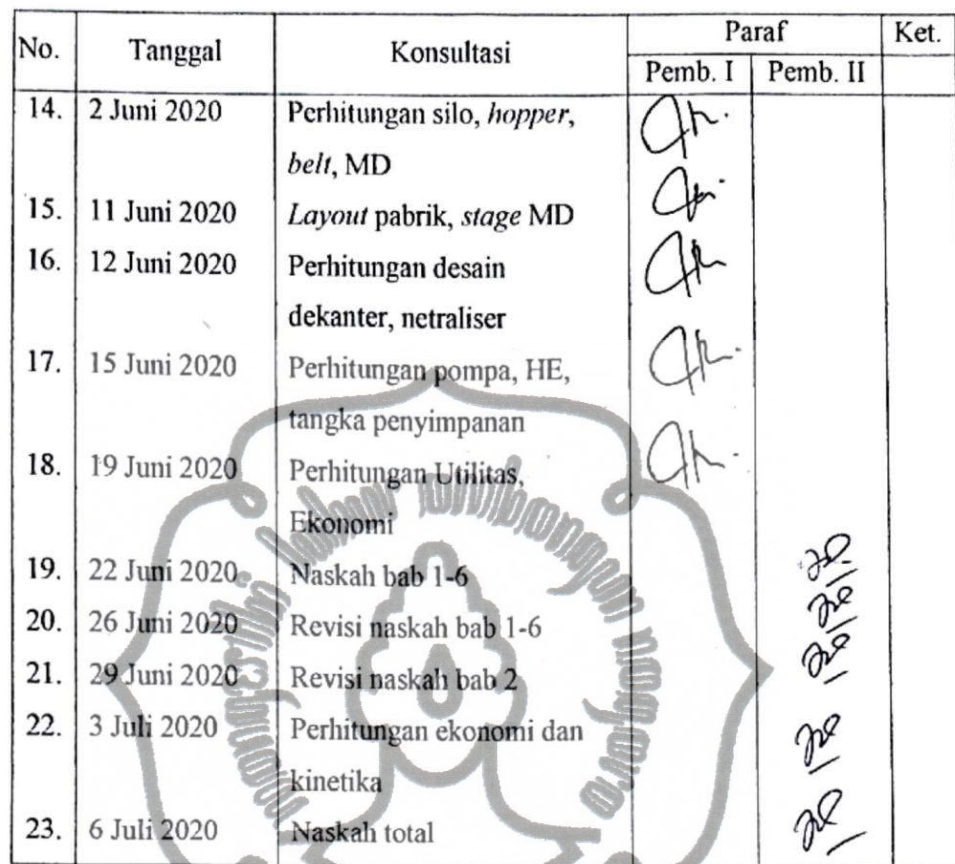 No. Tanggal Konsultasi Paraf Ket.
Pemb. I Pemb. II
14. 2 Juni 2020 Perhitungan silo, hopper,
belt, MD
15. 11 Juni 2020 Layout pabrik, stage MD
16. 12 Juni 2020 Perhitungan desain
dekanter, netraliser
17. 15 Juni 2020 Perhitungan pompa, HE,
tangka penyimpanan
18. 19 Juni 2020 Perhitungan Utilitas,
Ekonomi
19. 22 Juni 2020 Naskah bab 1-6
20. 26 Juni 2020 Revisi naskah bab 1-6
21. 29 Juni 2020 Revisi naskah bab 2
22. 3 Juli 2020 Perhitungan ekonomi dan
kinetika
23. 6 Juli 2020 Naskah total